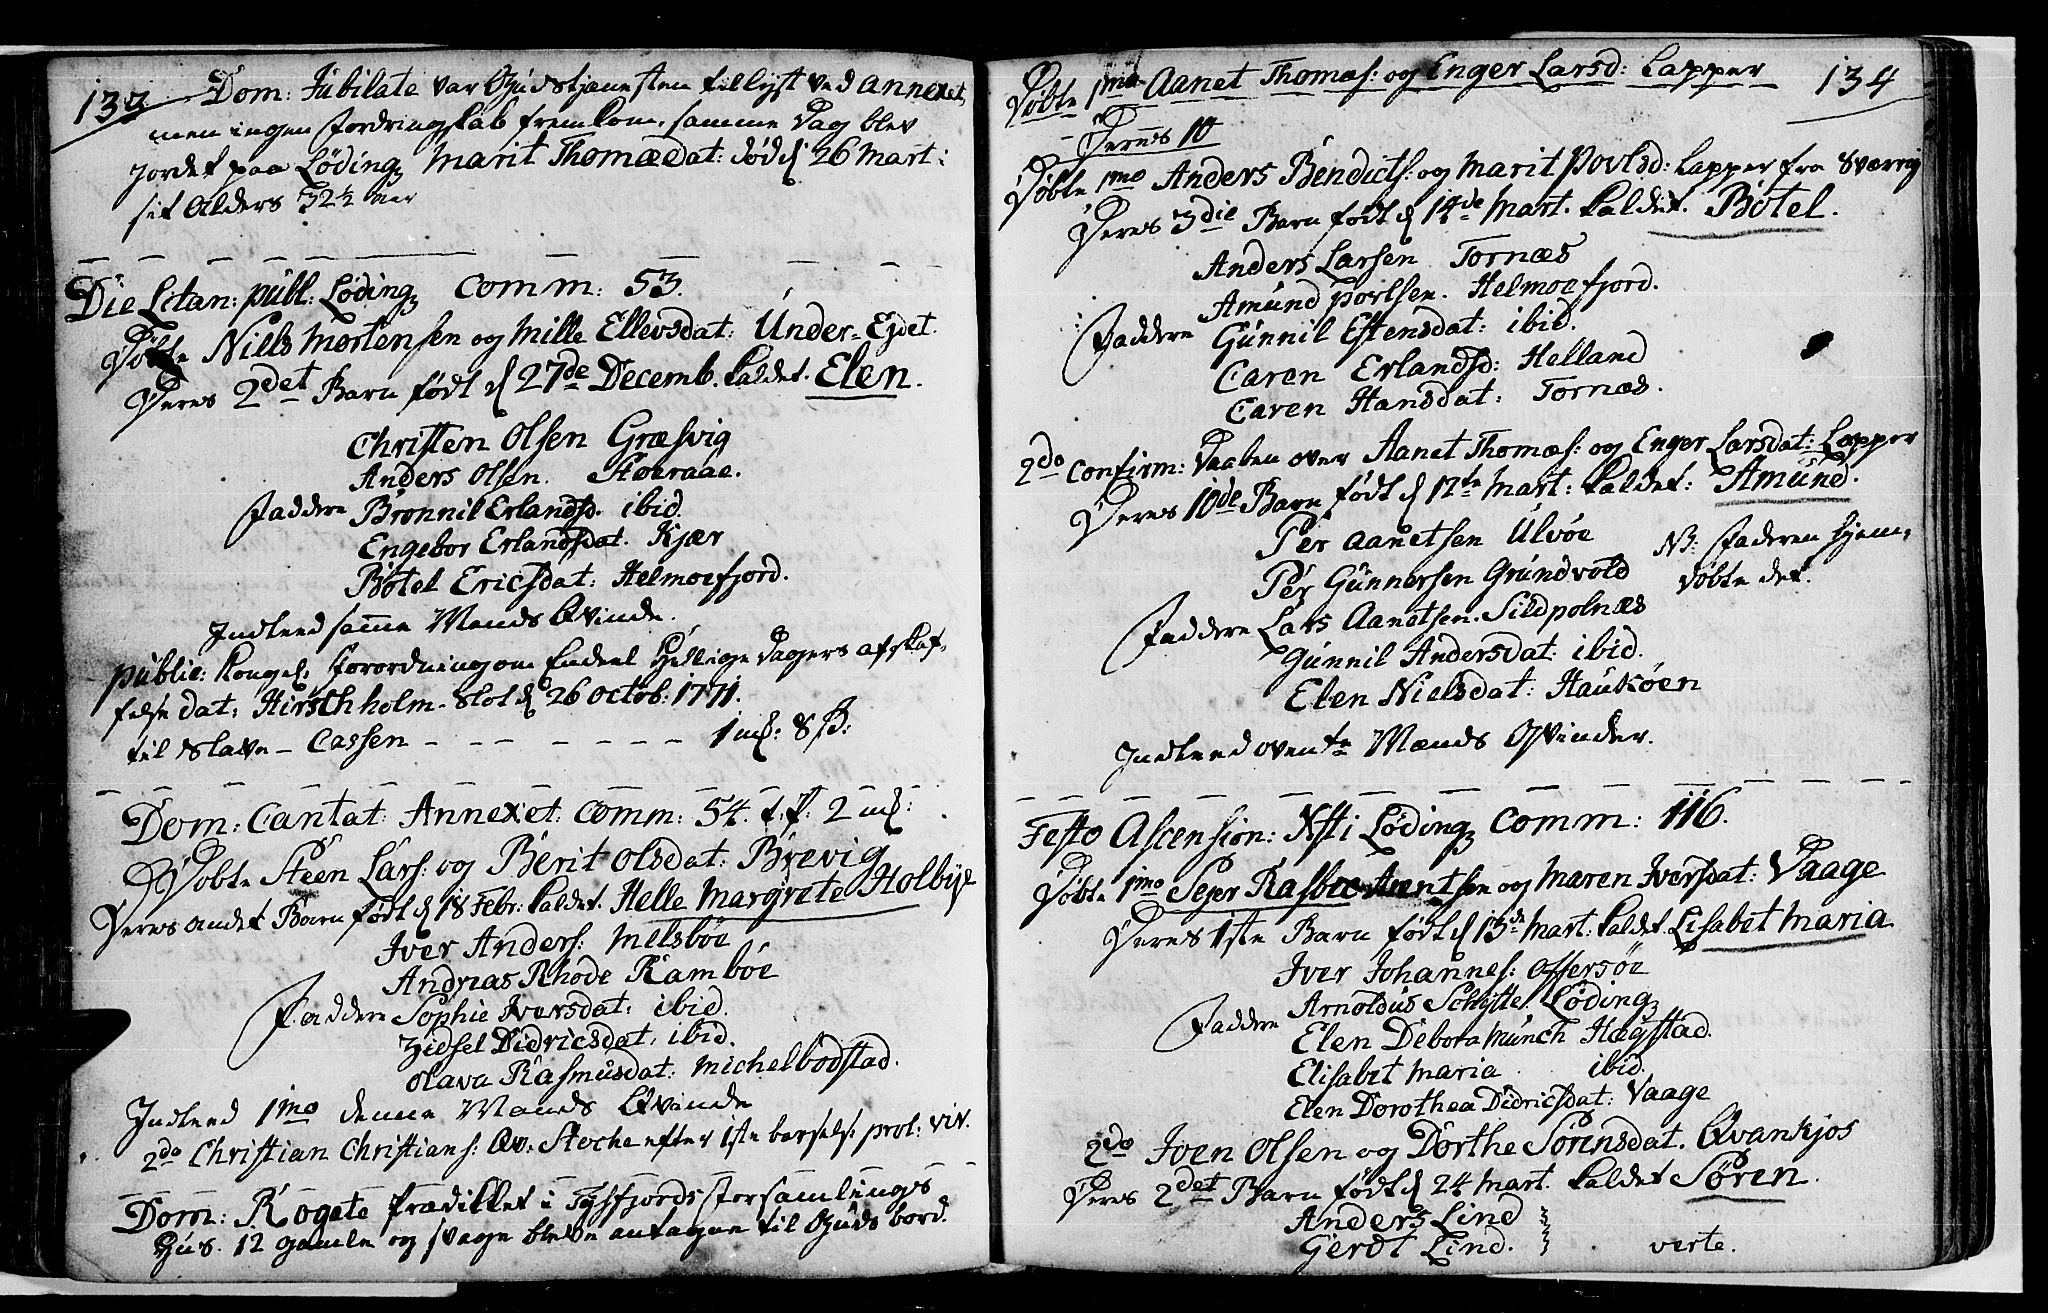 133. Dom: Jubilate var Gudstjenesten tillyst ved annexet,
men ingen Jordringskab fremkom. samme Dag blev
Jordet paa Løding Marit Thomædat: død d 26 Mart:
sit Alders 32½ aar
Die Letan: publ: Løding Comm: 53.
Døbte Niels Mortensen og Mille Ellevsdat: Under-Ejdet.
Deres 2det Barn født d 27de Decemb. kaldet. Elen.
Christen Olsen Græsvig
Anders Olsen. Storaae.
Faddere Brønnil Erlandsd. ibid.
Engebor Erlandsdat. Kjær
Bøtel Ericsdat: Helmocfjord.
Indleed samme Mands Qvinde.
public: Kongel: Forordning om Endeel Hellige Dagers afskaf-
felse dat: Hirschholm-Slot d 26 Octob: 1771.
til Slave-Cassen - - - - - - 1 mk: 8 ß:
Dom: Cantat: Annexet Comm: 54. t. T. 2 mk:
Døbte Steen Lars: og Berit Olsdat: Brevig
Deres andet Barn født d 18 Febr: kaldet. Helle Margrete Holbye
Iver Anders: Melsbøe
Andreas Rhode Rambøe
Faddere Sophie Iversdat: ibid.
Zidsel Didricsdat: ibid.
Olava Rasmusdat: Michelbodstad.
Indleed 1mo denne Mands Qvinde
2do Christian Christians: Qv: Stoche efter 1ste barsels: prol: viv.
Dom: Rogate Prædikket i Tysfjords forsamlings
Huus. 12 gamle og svage bleve antagne til Guds bord.
134
Døbte 1mo Aanet Thomæs: og Enger Larsd: Lapper
Deres 10
Døbte 1mo Anders Bendicts: og Marit Povlsd: Lapper fra Sverrig
Deres 3die Barn født d 14de Mart. kaldet. Bøtel.
Anders Larsen Tornæs
Amund Povlsen. Helmocfjord.
Faddere Gunnil Estensdat: ibid.
Caren Erlandsd: Helland
Caren Hansdat: Tornæs.
2do Confirm: Daaben over Aanet Thomæs: og Enger Larsdat: Lapper
Deres 10de Barn født d 12te Mart: kaldet: Amund.
Per Aanetsen Ulvøe
NB: Faderen hjem-
Per Gunnersen Grundvold
døbte det.
Faddere Lars Aanetsen. Sildpolnæs
Gunnil Andersdat: ibid.
Elen Nielsdat: Haukøen
Indleed ovente Mænds Qvinder.
Festo Ascension: Xsti Løding Comm: 116.
Døbte 1mo Sejer Rasbec Arentsen og Maren Iversdat: Vaage
Deres 1ste Barn født d 13de Mart: kaldet Lisabet Maria
Iver Johannes: Offersøe
Arnoldus Schytte Løding
Faddere Elen Debora Munch Hægstad.
Elisabet Maria ibid.
Elen Dorothea Didricsdat: Vaage
2do Iven Olsen og Dorthe Sørensdat. Qvankjos
Deres 2det Barn født d 24 Mart. kaldet Søren.
Anders Lind
Gerdt Lind. verte.